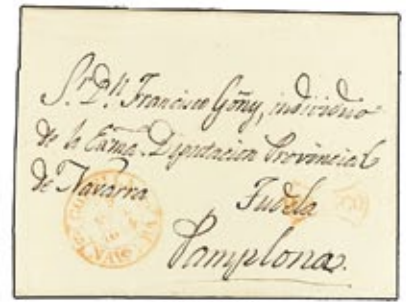 Sr. Dn. Francisco Goñy, individuo
de la Exma. Diputacion Provincial
de Navarra
Tudela
Pamplona.